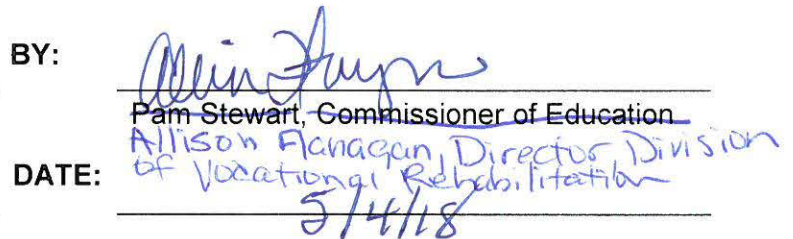 BY:
Pam Stewart, Commissioner of Education
Allison Flanagan, Director, Division
of Vocational Rehabilitation
DATE:
5/4/18